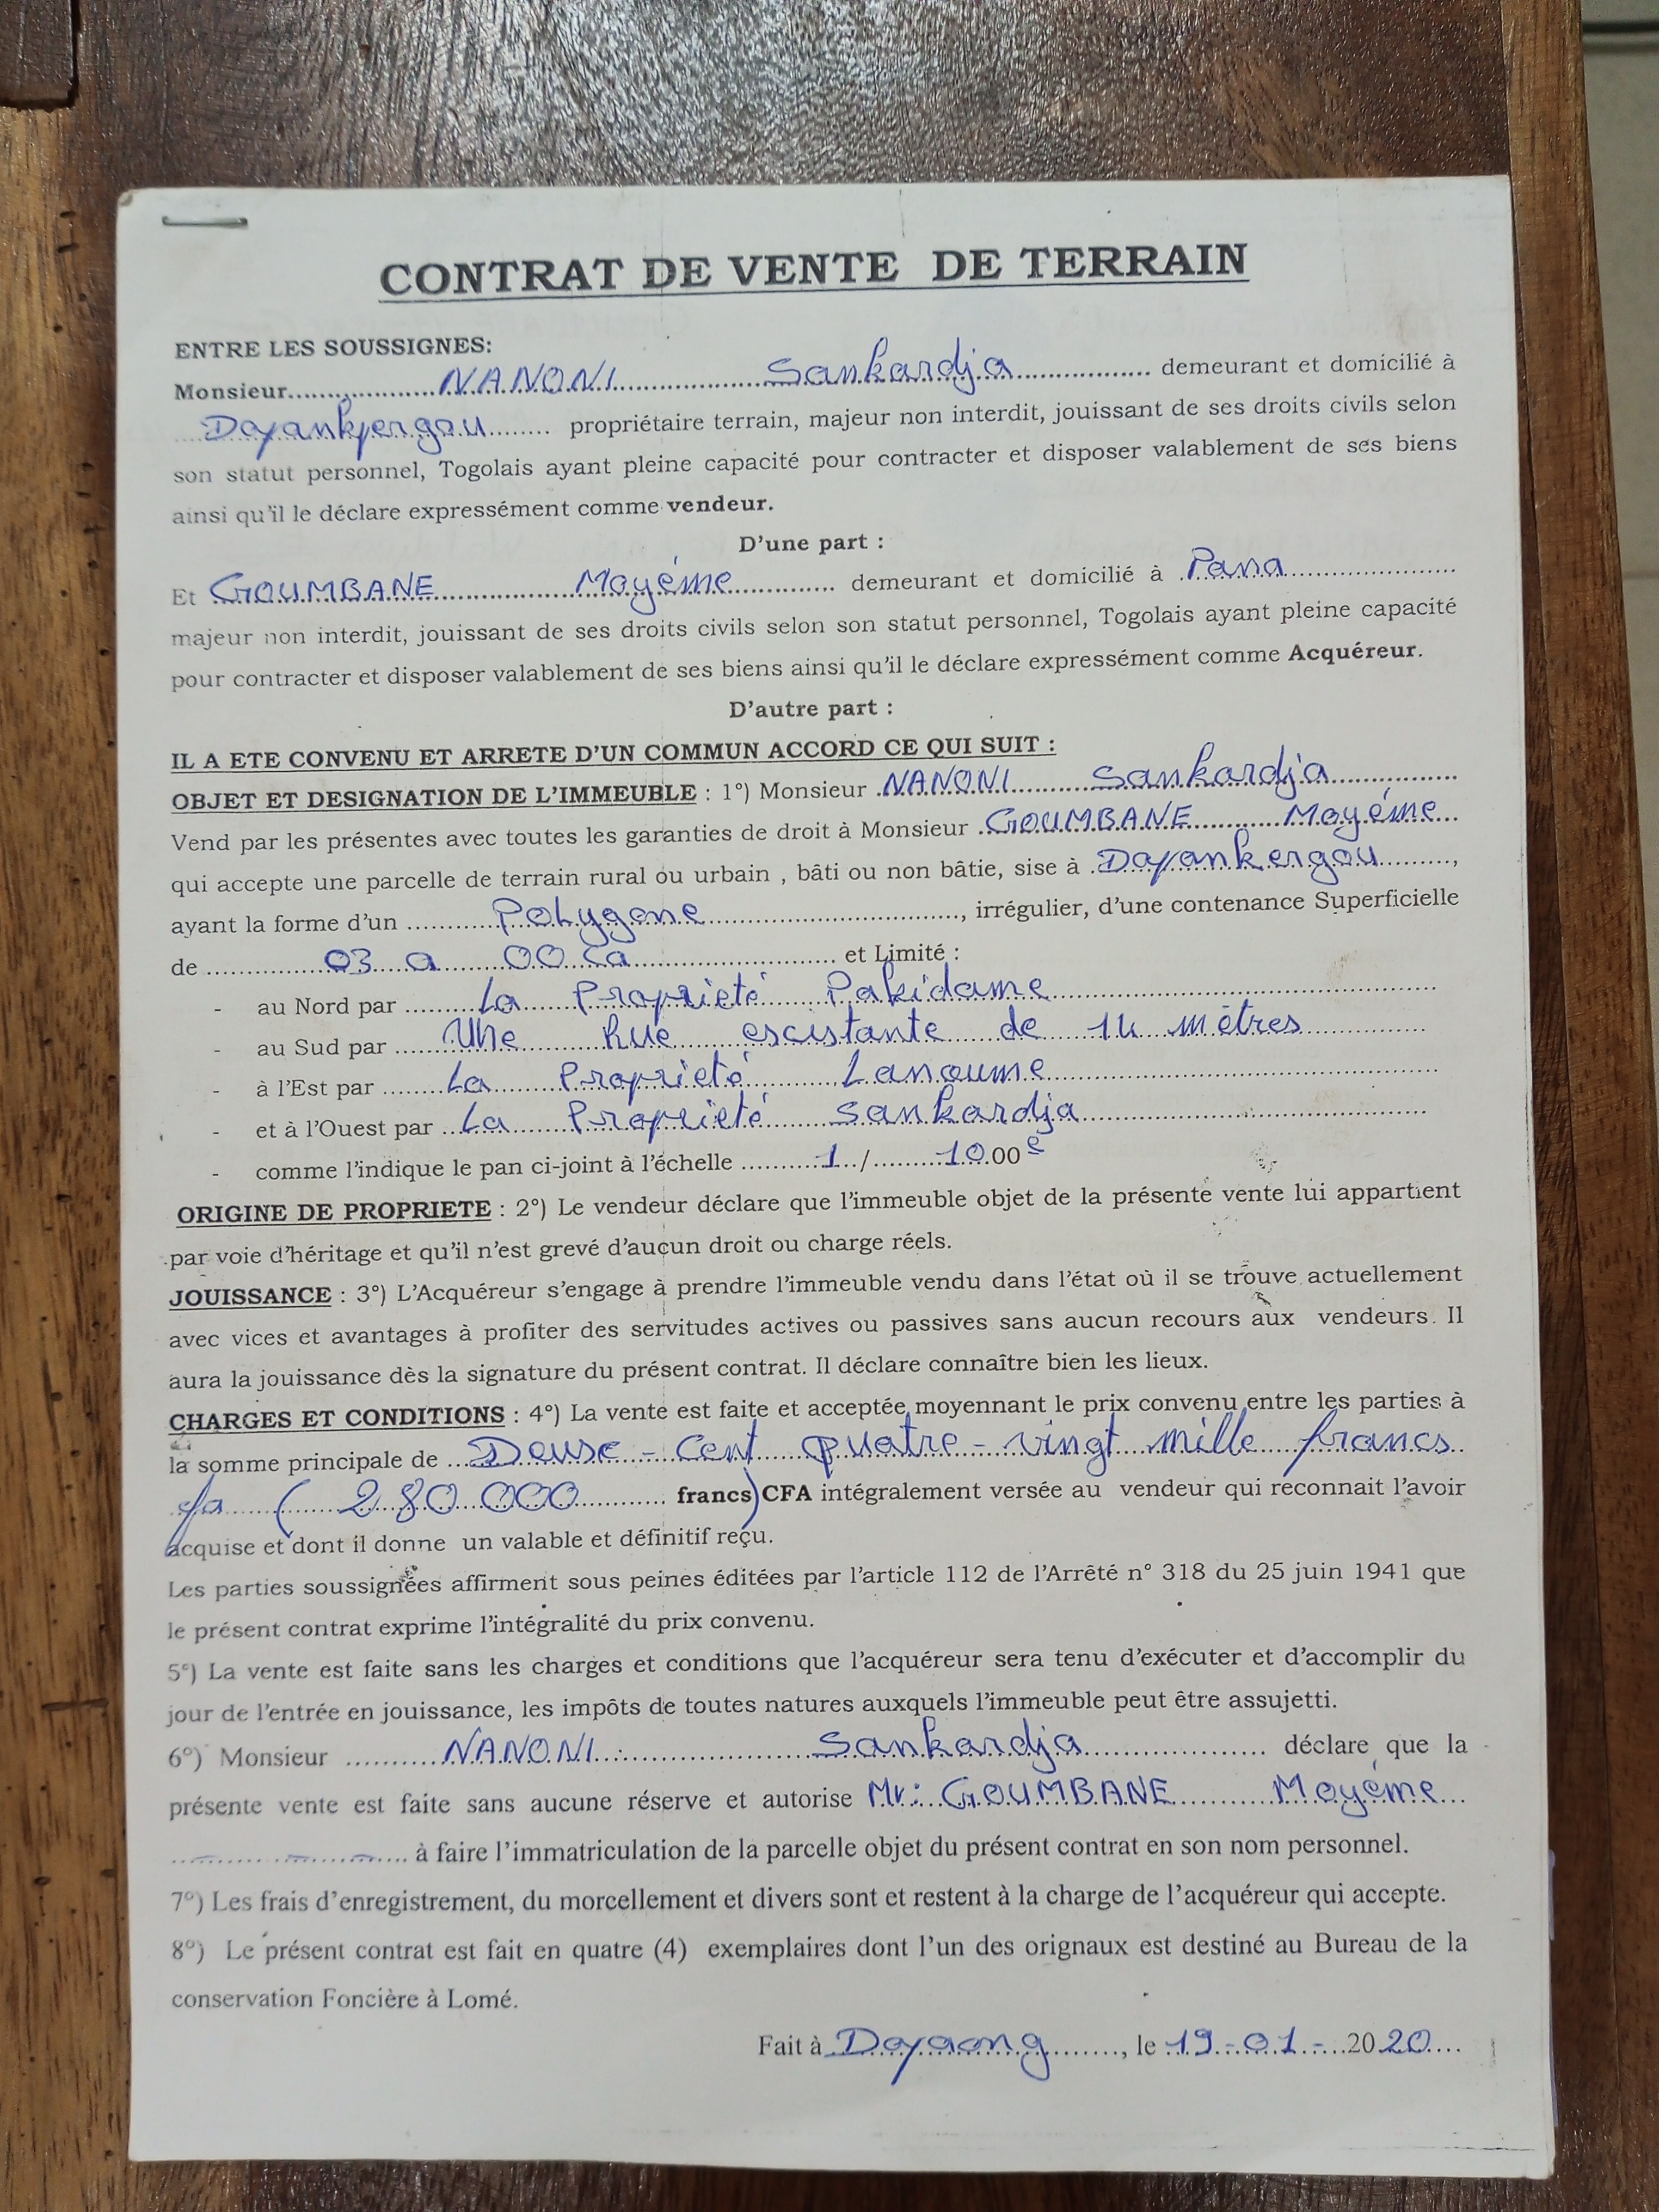 CONTRAT DE VENTE DE TERRAIN
ENTRE LES SOUSSIGNES:
Monsieur.................NANONI.................Sankardja................. demeurant et domicilié à
Dapankpergou........ propriétaire terrain, majeur non interdit, jouissant de ses droits civils selon
son statut personnel, Togolais ayant pleine capacité pour contracter et disposer valablement de ses biens
ainsi qu'il le déclare expressément comme vendeur.
D'une part :
Et GOUMBANE.................Moyéme............ demeurant et domicilié à .Pana.................
majeur non interdit, jouissant de ses droits civils selon son statut personnel, Togolais ayant pleine capacité
pour contracter et disposer valablement de ses biens ainsi qu'il le déclare expressément comme Acquéreur.
D'autre part :
IL A ETE CONVENU ET ARRETE D'UN COMMUN ACCORD CE QUI SUIT :
OBJET ET DESIGNATION DE L'IMMEUBLE : 1°) Monsieur .NANONI.........Sankardja.............
Vend par les présentes avec toutes les garanties de droit à Monsieur .GOUMBANE.........Moyéme...
qui accepte une parcelle de terrain rural ou urbain , bâti ou non bâtie, sise à .Dapankergou..........,
ayant la forme d'un ..........Polygone..............................., irrégulier, d'une contenance Superficielle
de ..............03 a 00 ca......................... et Limité :
- au Nord par ..........La Proprieté Pakidame.................
- au Sud par ......Une Rue escistante de 14 mètres.............
- à l'Est par ........La Proprieté Lanoume.................
- et à l'Ouest par ...La Proprieté sankardja.................
- comme l'indique le pan ci-joint à l'échelle ..........1../.........10.00 e
ORIGINE DE PROPRIETE : 2°) Le vendeur déclare que l'immeuble objet de la présente vente lui appartient
par voie d'héritage et qu'il n'est grevé d'aucun droit ou charge réels.
JOUISSANCE : 3°) L'Acquéreur s'engage à prendre l'immeuble vendu dans l'état où il se trouve actuellement
avec vices et avantages à profiter des servitudes actives ou passives sans aucun recours aux vendeurs. Il
aura la jouissance dès la signature du présent contrat. Il déclare connaître bien les lieux.
CHARGES ET CONDITIONS : 4°) La vente est faite et acceptée moyennant le prix convenu entre les parties à
la somme principale de ...Deuse - cent quatre - vingt mille francs..
cfa ( 280 000............ francs) CFA intégralement versée au vendeur qui reconnait l'avoir
acquise et dont il donne un valable et définitif reçu.
Les parties soussignées affirment sous peines éditées par l'article 112 de l'Arrêté n° 318 du 25 juin 1941 que
le présent contrat exprime l'intégralité du prix convenu.
5°) La vente est faite sans les charges et conditions que l'acquéreur sera tenu d'exécuter et d'accomplir du
jour de l'entrée en jouissance, les impôts de toutes natures auxquels l'immeuble peut être assujetti.
6°) Monsieur ..........NANONI.................Sankardja.................. déclare que la
présente vente est faite sans aucune réserve et autorise Mr: GOUMBANE.........Moyéme...
.................... à faire l'immatriculation de la parcelle objet du présent contrat en son nom personnel.
7°) Les frais d'enregistrement, du morcellement et divers sont et restent à la charge de l'acquéreur qui accepte.
8°) Le présent contrat est fait en quatre (4) exemplaires dont l'un des orignaux est destiné au Bureau de la
conservation Foncière à Lomé.
Fait à Dapaong........, le 19-01-2020....